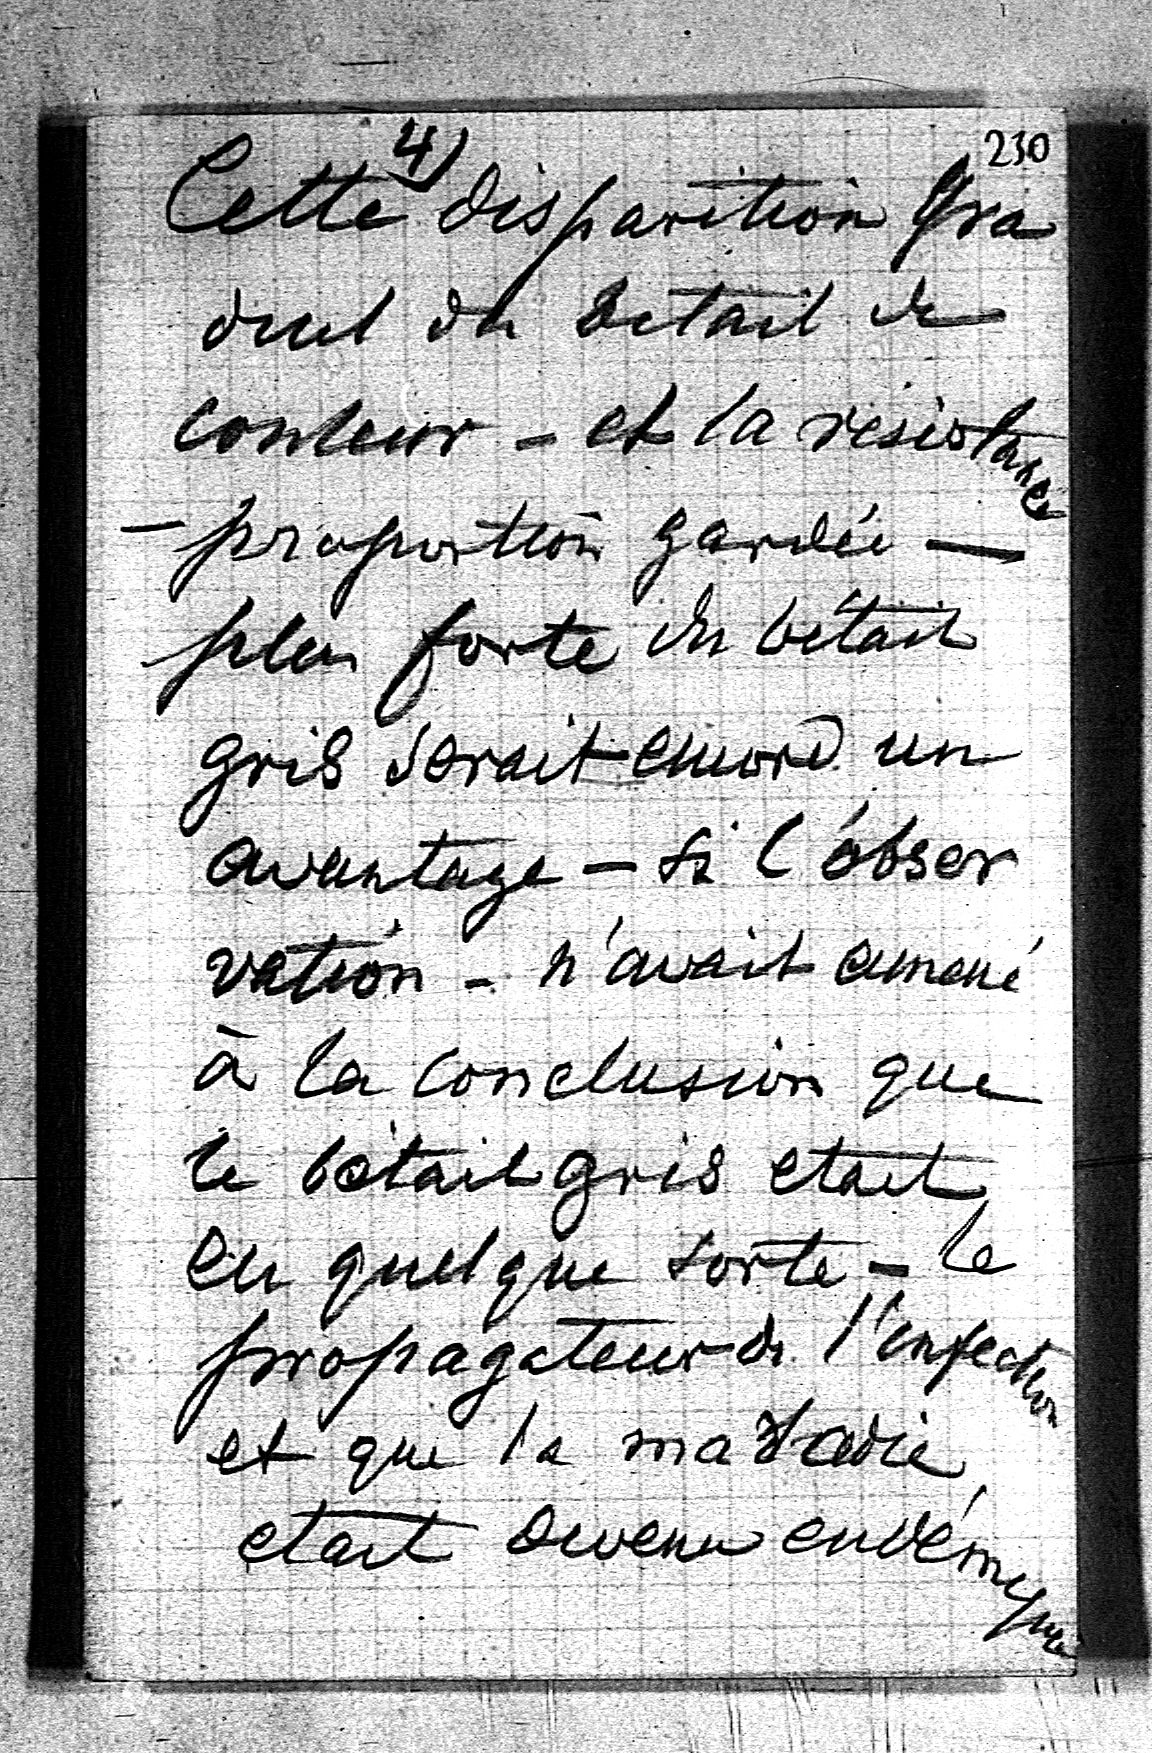 4)
230
Cette disparition gra
duel du betail de
couleur - et la résistance
- proportion gardée -
plus forte du bétail
gris serait encore un
avantage - si l'obser
vation - n'avait amené
à la conclusion que
le bétail gris etait
en quelque sorte - le
propagateur de l'infection
et que la maladie
etait devenu endémique